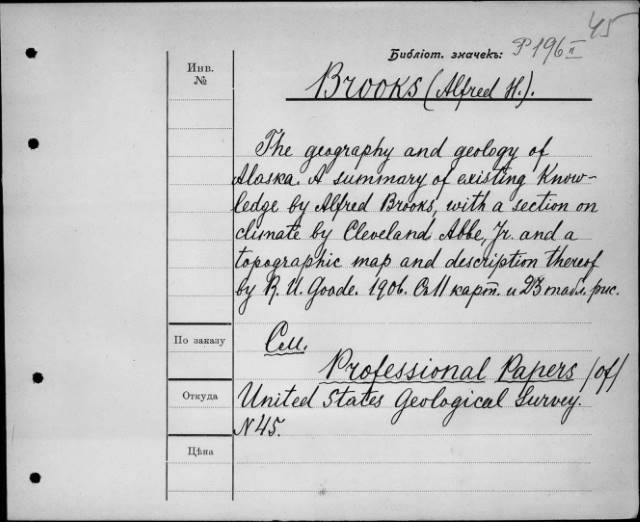 45
Библіот. значекъ: P 196 II
Инв. №
Brooks (Alfred H.).
The geography and geology of
Alaska. A summary of existing Know-
ledge by Alfred Brooks, with a section on
climate by Cleveland Abbe, Jr. and a
topographic map and description thereof
by R. U. Goode. 1906. Съ 11 карт. и 23 табл. рис.
По заказу
См.
Professional Papers /of/
Откуда
United States Geological Survey.
N 45.
Цѣна